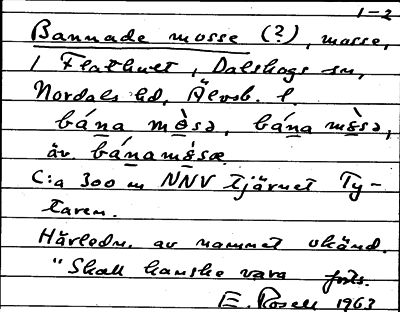 1-2
Bannade mosse (?), mosse,
i Flathult, Dalskogs sn,
Nordals hd, Älvsb. l.
bána mòsə, bána mòsə,
äv. bánamòsæ
C:a 300 m NNV tjärnet Ty-
taren.
Härledn. av namnet okänd.
"Skall kanske vara
E. Rosell 1963